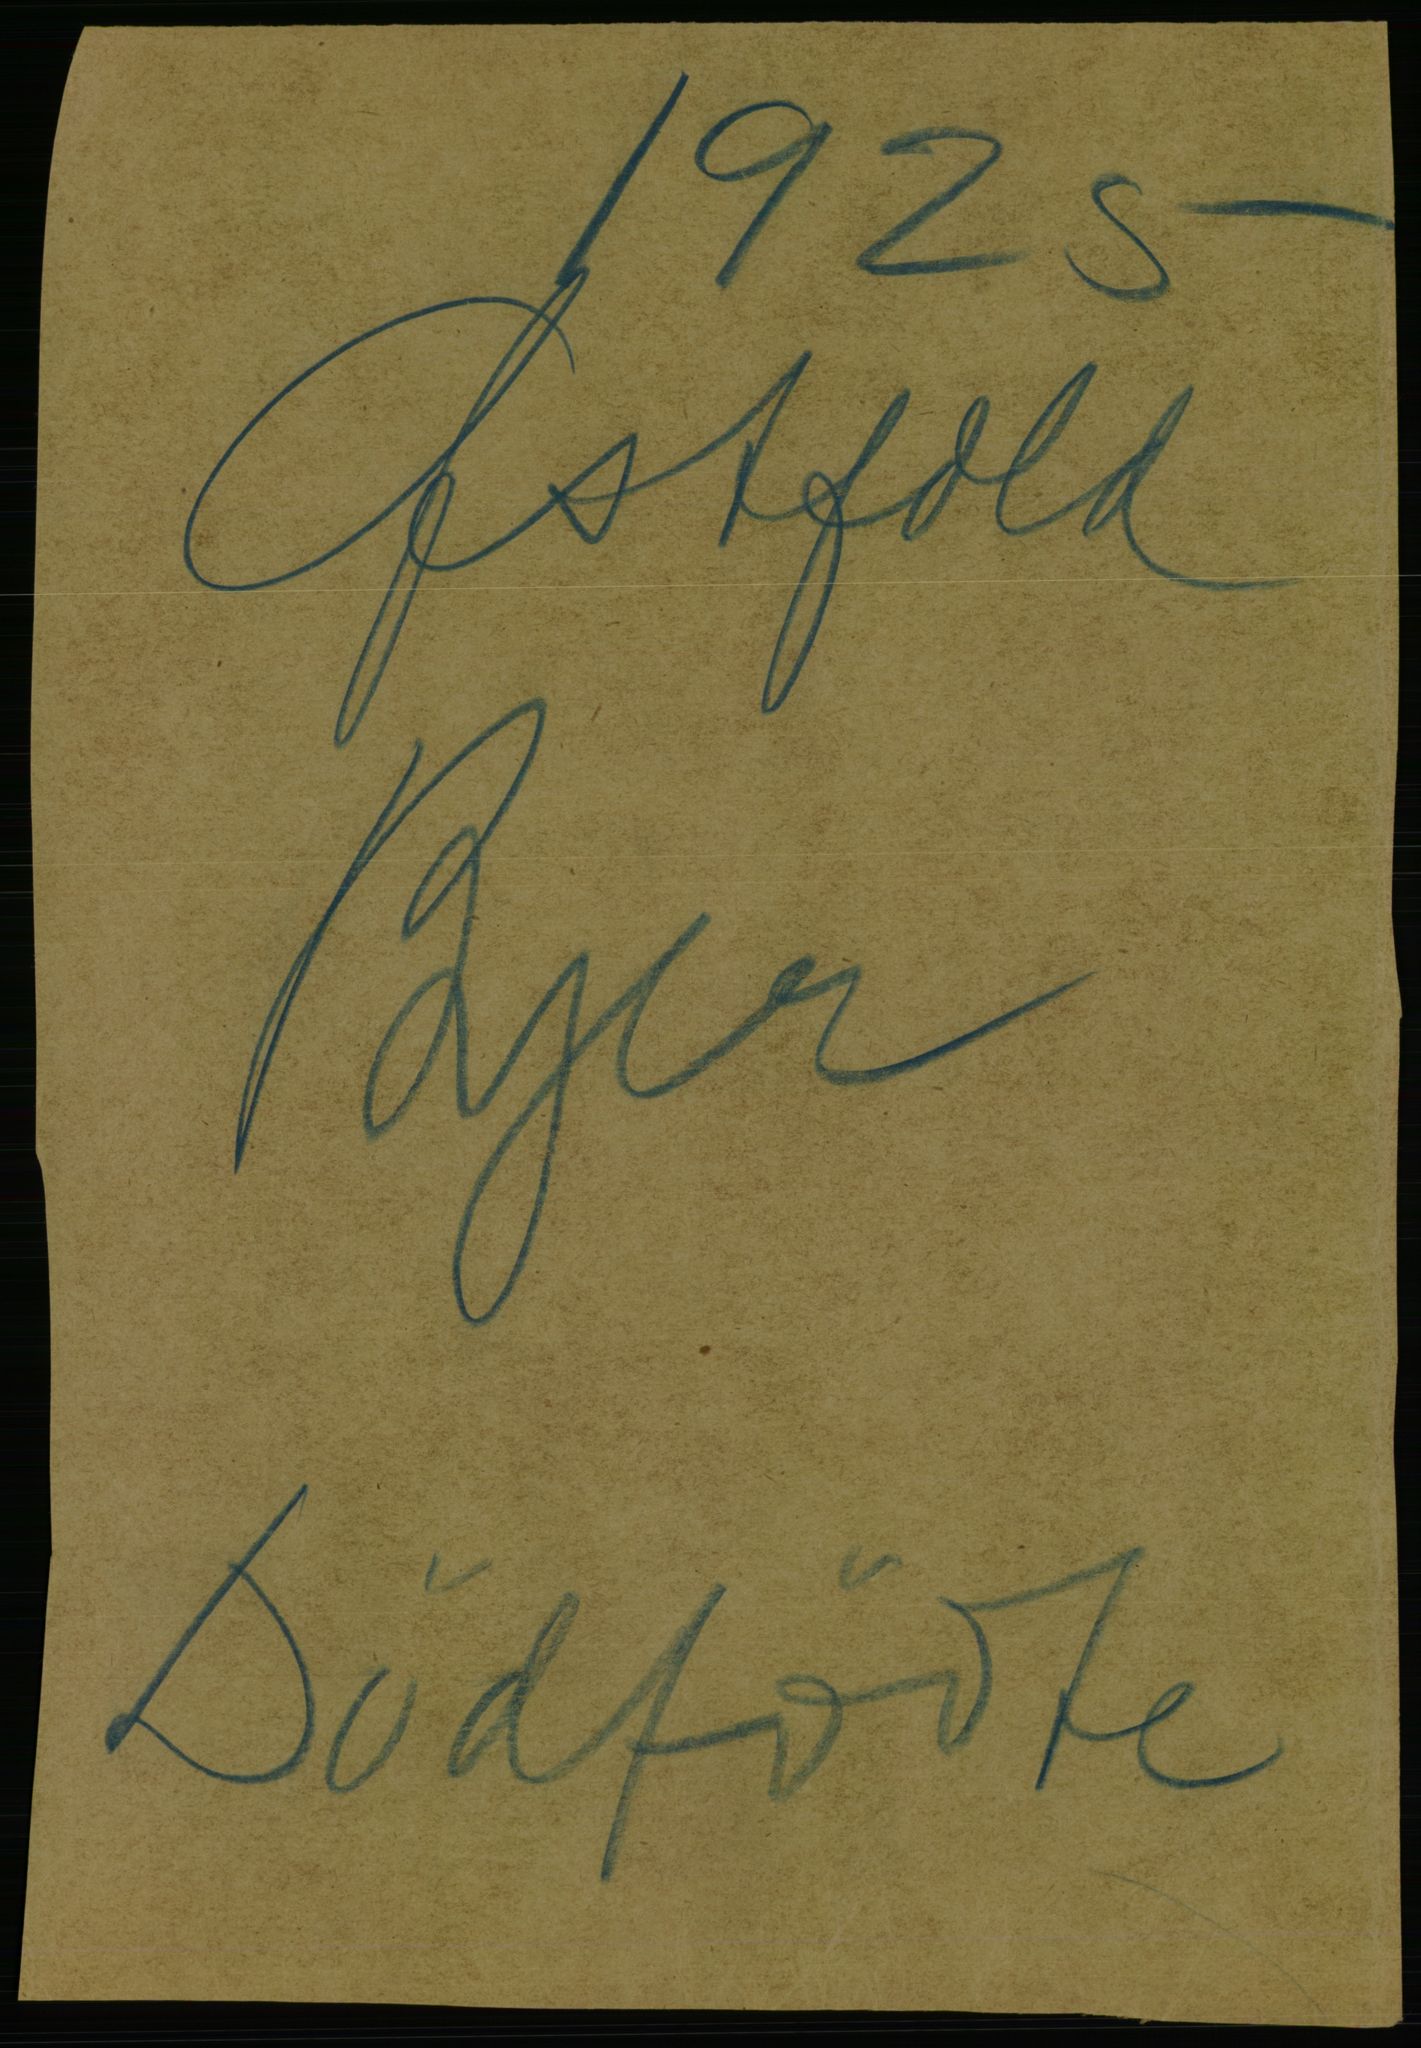 1925
Østfold
Byer
Dödföдte